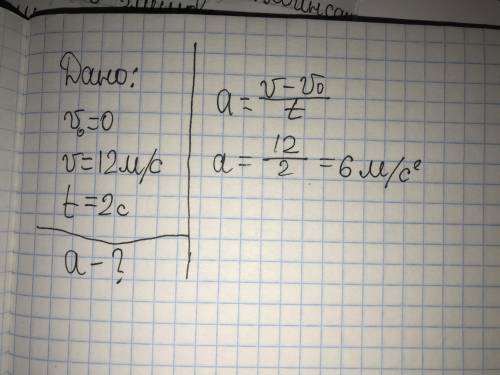 Дано:
v₀=0
v=12м/с
t=2с
a-?
a= v-v₀/t
a= 12/2 =6м/с²